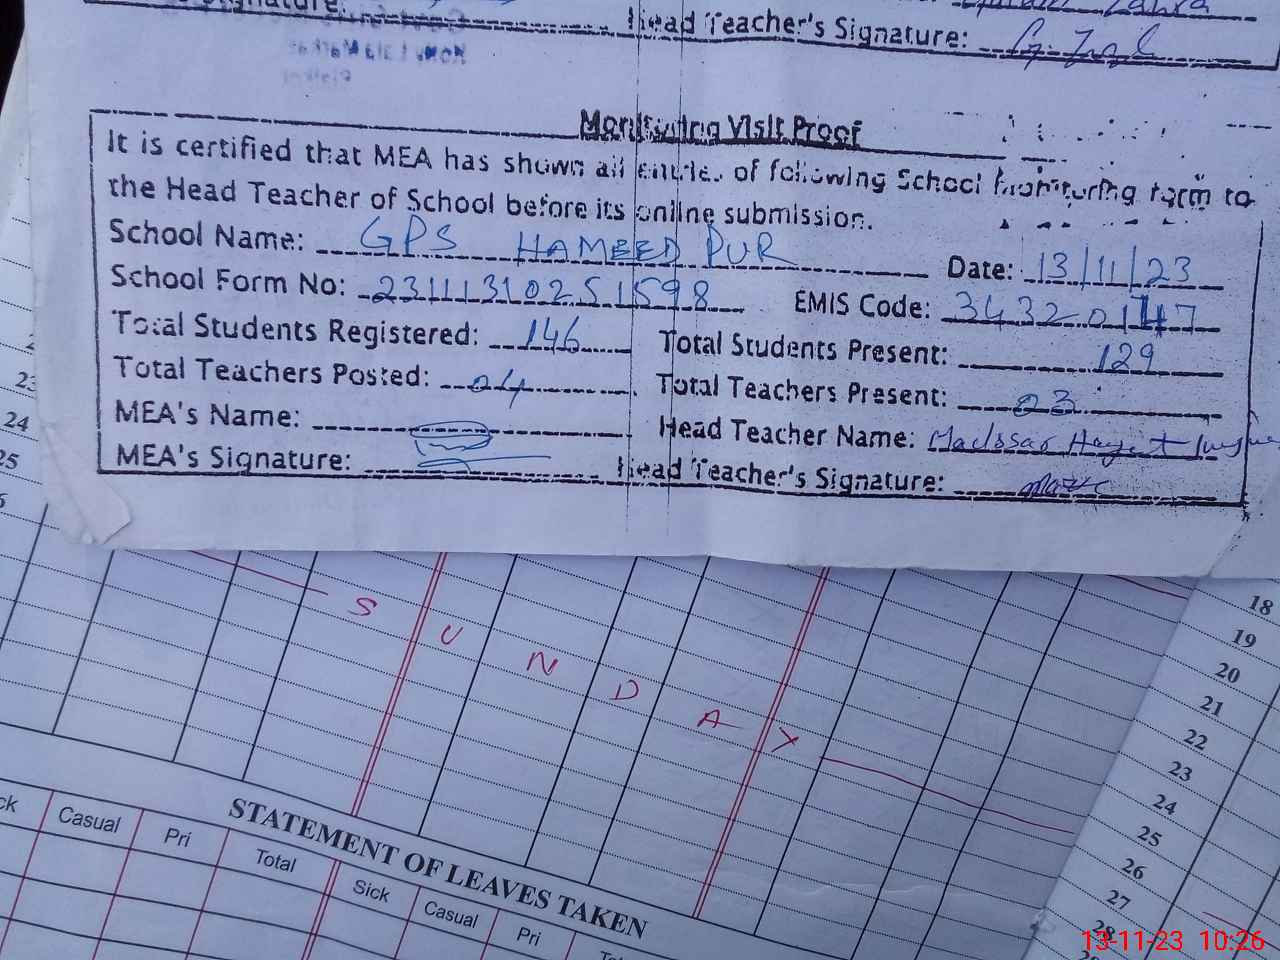 Head Teacher's Signature:
Monitoring Visit Proof
It is certified that MEA has shown all entries of following School monitoring form to
the Head Teacher of School before its online submission.
School Name: GPS HAMEED PUR Date: 13/11/23
School Form No: 23111310251598 EMIS Code: 34320147
Total Students Registered: 146 Total Students Present: 129
Total Teachers Posted: 04 Total Teachers Present: 03
MEA's Name: Head Teacher Name: Hayat
MEA's Signature: Head Teacher's Signature:
24
25
SUNDAY
18
19
20
21
22
23
24
25
26
27
28
STATEMENT OF LEAVES TAKEN
Casual Pri Total Sick Casual Pri
13-11-23 10:26